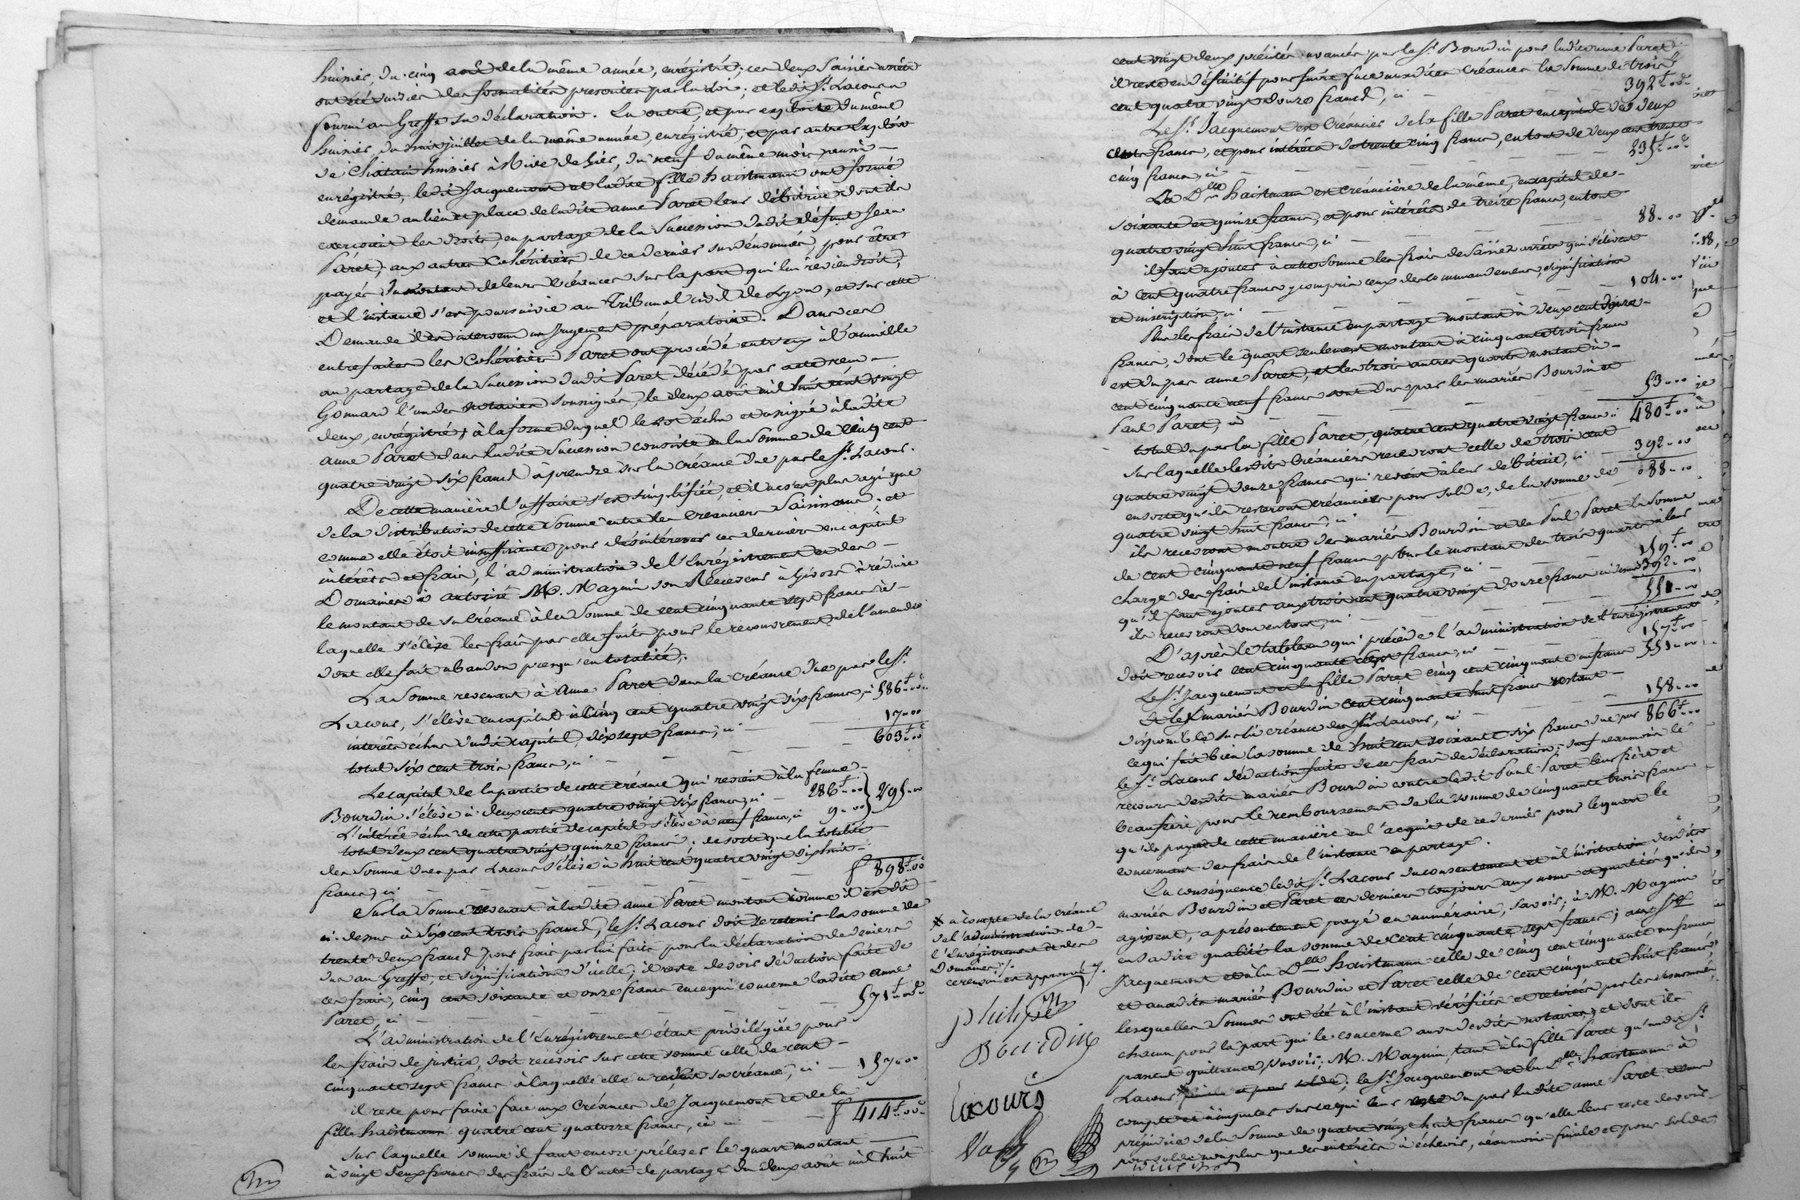 huissier, du cinq août de la même année, enregistré; ces deux saisies arrêts
ont été suivies des formalités prescrites par la loi, et ledit Sr. Lacours a
fourni au Greffe sa déclaration. En outre, et par exploits du même
huissier, du trois juillet de la même année, enregistré, et par autre Exploit
de Chatain huissier à Rive de Gier, du neuf du même mois, aussi
enregistré, ledit Jacquemont et ladite fille haistmann ont formé
demande au lieu et place de ladite anne Paret leur débitrice dont ils
exercoient les droits, en partage de la Succession dudit défunt Jean
Paret, aux autres Cohéritiers de ce dernier susdénommés, pour être
payés du montant de leurs créances sur la part qui lui reviendroit,
et l'instance s'est poursuivie au Tribunal civil de Lyon, et sur cette
Demande il est intervenu un jugement préparatoire. Dans ces
entrefaites les Cohéritiers Paret ont procédé entr'eux à l'amiable
au partage de la Succession dudit Paret décédé, par acte reçu
Gonnard l'un des notaires soussignés, le deux août mil huit cent vingt
deux, enregistré; à la forme duquel le lot échu et assigné à ladite
anne Paret dans ladite Succession consiste en la Somme de Cinq cent
quatre vingt six francs à prendre sur la Créance due par le Sr. Lacours.
De cette manière l'affaire s'est simplifiée, et il ne s'est plus agi que
de la distribution de cette Somme entre les Créanciers Saisissans, et
comme elle étoit insuffisante pour désintéresser ces derniers en capital
intérêts et frais, l'administration de l'Enregistrement et des
Domaines a autorisé M. Magnin son Receveur à Givors à réduire
le montant de sa Créance à la Somme de cent cinquante sept francs à
laquelle s'élève les frais par elle faits pour le recouvrement de l'amende
dont elle fait abandon presqu'en totalité.
La Somme revenant à Anne Paret dans la créance due par le Sr.
Lacours, s'élève en capital à Cinq cent quatre vingt six francs, ci 586ᶠ..00
intérêts échus dudit capital, dix sept francs, ci — 17..00
total six cent trois francs, ci — 603ᶠ..00
Le capital de la partie de cette créance qui revient à la femme
Bourdin s'élève à deux cents quatre vingt six francs, ci — 286ᶠ..00
L'intérêt échu de cette partie de capital s'élève à neuf francs, ci 9..00 } 295..00
total deux cent quatre vingt quinze francs; de sorte que la totalité
des Sommes dues par Lacours s'élève à huit cent quatre vingt dix huit
francs, ci — 898ᶠ..00
Sur la Somme revenant à ladite anne Paret montant comme il est dit
ci-dessus à six cent trois francs, le Sr. Lacours doit retenir la somme de
trente deux francs pour frais par lui faits pour la déclaration de deniers
due au Greffe, et signification d'icelle; il reste devoir déduction faite de
ces frais, cinq cent soixante et onze francs en ce qui concerne ladite anne
Paret, ci — 571ᶠ..00
L'administration de l'Enregistrement étant privilégiée pour
les frais de justice, doit recevoir sur cette somme celle de cent
cinquante sept francs à laquelle elle a réduit sa créance, ci — 157..00
il reste pour faire face aux Créances de Jacquemont et de la
fille haistmann quatre cent quatorze francs, ci — 414ᶠ..00
Sur laquelle somme il faut encore prélever le quart montant
à vingt deux francs des frais de l'acte de partage du deux août mil huit
cent vingt deux précité avancés par le Sr. Bourdin pour ladite anne Paret
il reste en définitif pour faire face auxdites Créances la somme de trois
cent quatre vingt douze francs, ci — 392ᶠ..00
Le Sr. Jacquemont est Créancier de la fille Paret en capital de deux
cents francs, et pour intérêts de trente cinq francs, en tout de deux cent trente
cinq francs, ci — 235ᶠ..00
La Dlle. haistmann est créancière de la même, en capital de
soixante et quinze francs, et pour intérêts, de treize francs, en tout
quatre vingt huit francs, ci — 88..00
il faut ajouter à cette somme les frais de Saisies arrêts qui s'élèvent
à cent quatre francs y compris ceux des commandemens, significations
et inscription, ci — 104..00
Plus les frais de l'instance en partage montant à deux cent douze
francs, dont le quart seulement montant à cinquante trois francs
est dû par anne Paret, et les trois autres quarts montant à
cent cinquante neuf francs sont dus par les mariés Bourdin et
Paul Paret, ci — 53..00
total dû par la fille Paret, quatre cent quatre vingt francs, ci 480ᶠ..00
Sur laquelle lesdits Créanciers recevront celle de trois cent
quatre vingt douze francs qui revient à leur débitrice, ci — 392..00
ensorte qu'ils resteront créanciers pour solde, de la somme de
quatre vingt huit francs, ci — 088..00
ils recevront en outre des mariés Bourdin et de Paul Paret la somme
de cent cinquante neuf francs pour le montant des trois quarts à leur
charge des frais de l'instance en partage, ci — 159ᶠ..00
qu'il faut ajouter aux trois cent quatre vingt douze francs ci dessus 392..00
ils recevront donc en tout, ci — 551..00
D'après le tableau qui précède l'administration de l'enregistrement
doit recevoir cent cinquante sept francs, ci — 157ᶠ..00
Le Sr. Jacquemont et la fille Paret cinq cent cinquante un francs 551..00
Et les mariés Bourdin cent cinquante huit francs restant
disponible sur la créance du Sr. Lacours, ci — 158..00
ce qui fait bien la somme de huit cent soixante six francs due par 866ᶠ..00
le Sr. Lacours déduction faite de ses frais de déclaration; sauf néanmoins le
recours desdits mariés Bourdin contre ledit Paul Paret leur frère et
beaufrère pour le remboursement de la somme de cinquante trois francs
qu'ils payent de cette manière en l'acquit de ce dernier pour le quart le
concernant des frais de l'instance en partage.
En conséquence ledit Sr. Lacours du consentement et à l'invitation desdits
mariés Bourdin et Paret ces derniers toujours aux noms et qualités qu'ils
agissent, a présentement payé en numéraire, savoir; à M. Magnin
en sadite qualité la somme de cent cinquante sept francs; au Sr.
Jacquemont et à la Dlle. haistmann celle de cinq cent cinquante un francs
et auxdits mariés Bourdin et Paret celle de cent cinquante huit francs,
lesquelles sommes ont été à l'instant vérifiées et retirées par les susnommés,
chacun pour la part qui le concerne au vu desdits notaires, et dont ils
passent quittance, savoir; M. Magnin, tant à la fille Paret qu'audit Sr.
Lacours ※ ; le Sr. Jacquemont et la Dlle. haistmann à
compte et à imputer sur ce qui leur reste dû par ladite anne Paret et sans
préjudice de la Somme de quatre vingt huit francs qu'elle leur reste devoir
pour solde non plus que des intérêts à échoir, néanmoins finale et pour solde
※ à compte de la créance
de l'administration de
l'Enregistrement et des
Domaines /.
ce renvoi est approuvé /.
philip
Bourdin
Lacours